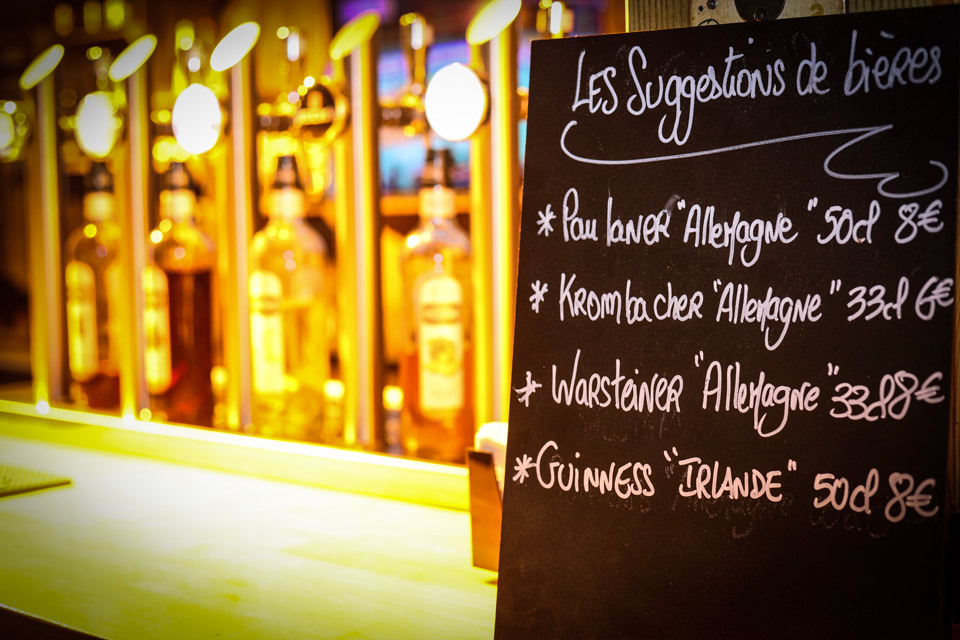 Les Suggestions de bières
* Paulaner "Allemagne" 50cl 8€
* Krombacher "Allemagne" 33cl 6€
* Warsteiner "Allemagne" 33cl 8€
* Guinness "IRLANDE" 50cl 8€